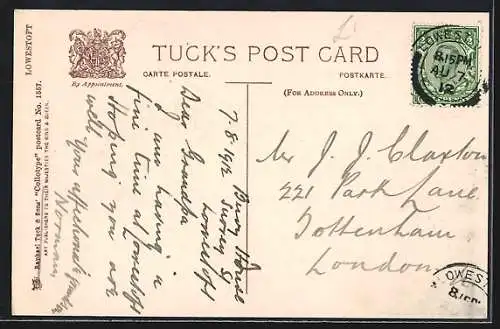 LOWESTOFT
By Appointment.
TUCK'S POST CARD
CARTE POSTALE.
POSTKARTE.
(FOR ADDRESS ONLY.)
LOWESTO
8.15PM
AU 7
12
7.8.1912
Surrey St
Lowestoft
Dear Grandpa
I am having a
fine time at Lowestoft
Hoping you are
well
Your affectionate
Norman
Mr J. J. Claxton
221 Park Lane
Tottenham
London
LOWEST
8.15PM
Raphael Tuck & Sons' "Collotype" postcard No. 1557.
ART PUBLISHERS TO THEIR MAJESTIES THE KING & QUEEN.